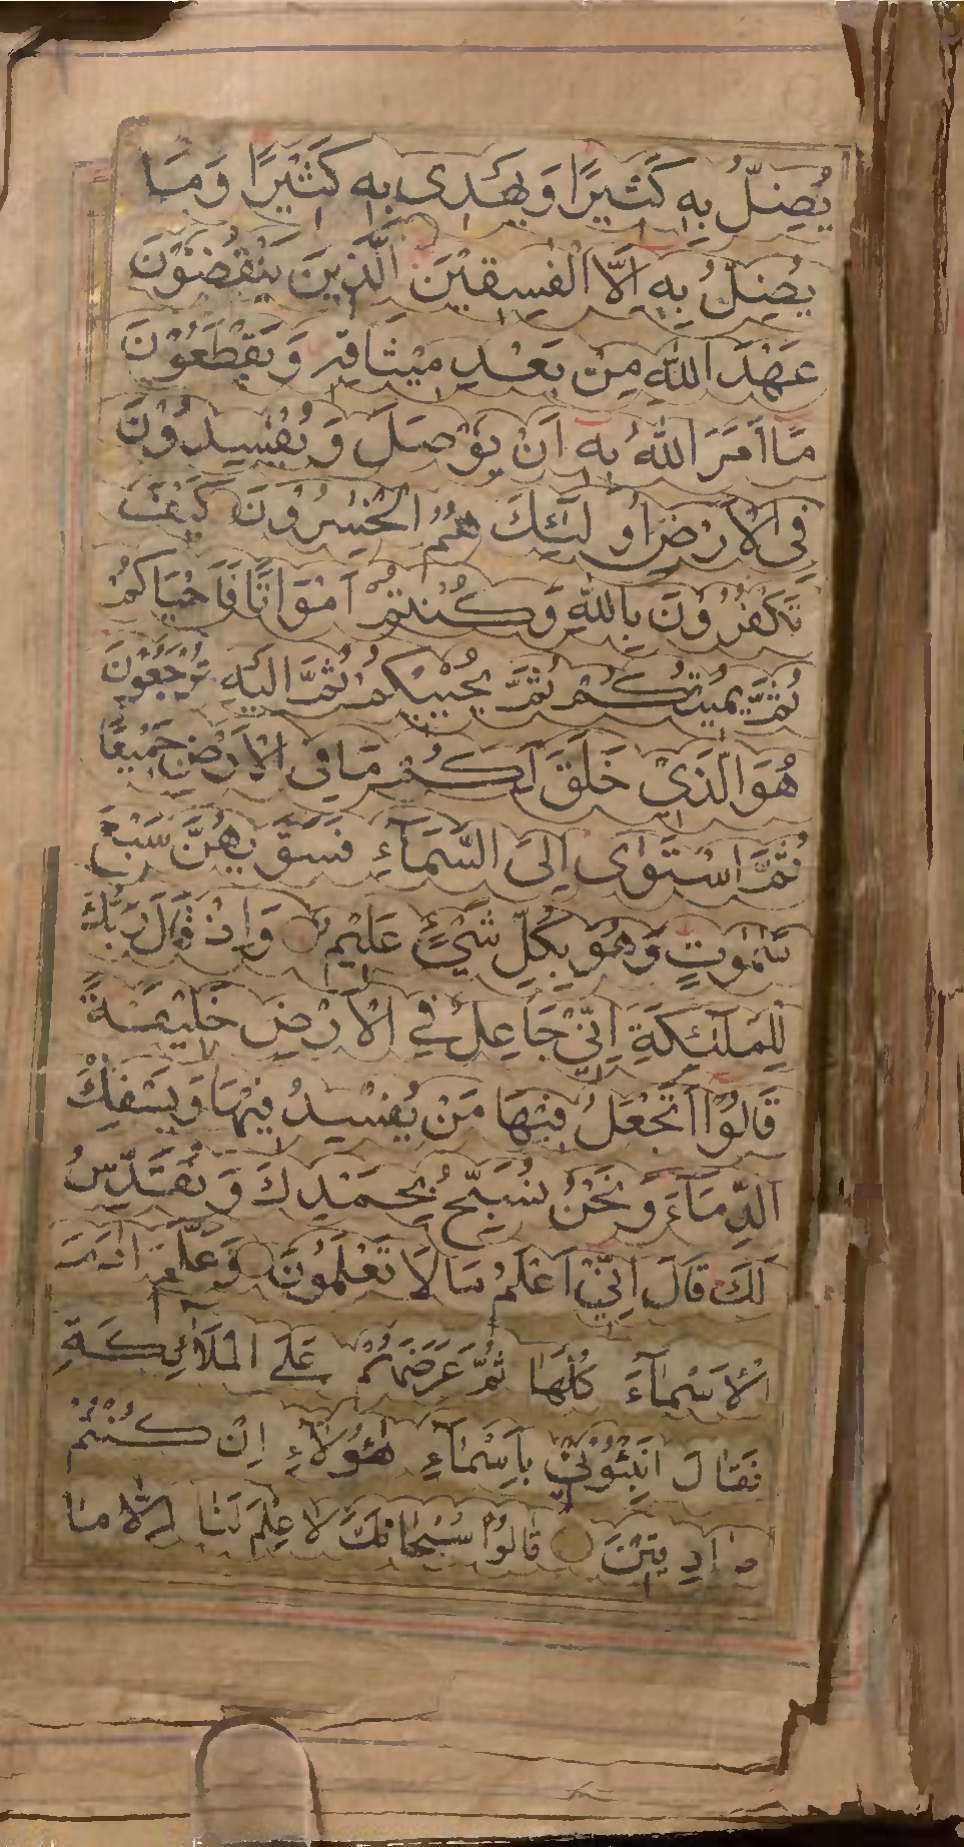 يُضِلُّ بِهِ كَثِيرًا وَيَهْدِى بِهِ كَثِيْرًا وَمَا
يُضِلُّ بِهٖ اِلَّا الْفٰسِقِيْنَ الَّذِينَ يَنْقُضُوْنَ
عَهْدَ اللّٰهِ مِنْ بَعْدِ مِيْثَاقِهِ وَيَقْطَعُوْنَ
مَا اَمَرَ اللّٰهُ بِهِ اَنْ يُوْصَلَ وَيُفْسِدُوْنَ
فِى الْاَرْضِ اُولٰئِكَ هُمُ الْخٰسِرُوْنَ كَيْفَ
تَكْفُرُوْنَ بِاللّٰهِ وَكُنْتُمْ اَمْوَاتًا فَاَحْيَاكُمْ
ثُمَّ يُمِيْتُكُمْ ثُمَّ يُحْيِيْكُمْ ثُمَّ اِلَيْهِ تُرْجَعُوْنَ
هُوَ الَّذِيْ خَلَقَ لَكُمْ مَا فِى الْاَرْضِ جَمِيْعًا
ثُمَّ اسْتَوٰى اِلَى السَّمَآءِ فَسَوّٰىهُنَّ سَبْعَ
سَمٰوٰتٍ وَهُوَ بِكُلِّ شَيْءٍ عَلِيْمٌ وَاِذْ قَالَ رَبُّكَ
لِلْمَلٰئِكَةِ اِنِّيْ جَاعِلٌ فِي الْاَرْضِ خَلِيْفَةً
قَالُوْا اَتَجْعَلُ فِيْهَا مَنْ يُفْسِدُ فِيْهَا وَيَسْفِكُ
الدِّمَآءَ وَنَحْنُ نُسَبِّحُ بِحَمْدِكَ وَنُقَدِّسُ
لَكَ قَالَ اِنِّيْ اَعْلَمُ مَا لَا تَعْلَمُوْنَ وَعَلَّمَ اٰدَمَ
الْاَسْمَآءَ كُلَّهَا ثُمَّ عَرَضَهُمْ عَلَى الْمَلَائِكَةِ
فَقَالَ اَنْبِئُوْنِيْ بِاَسْمَآءِ هٰؤُلَاءِ اِنْ كُنْتُمْ
صَادِقِيْنَ قَالُوْا سُبْحَانَكَ لَا عِلْمَ لَنَا اِلَّا مَا